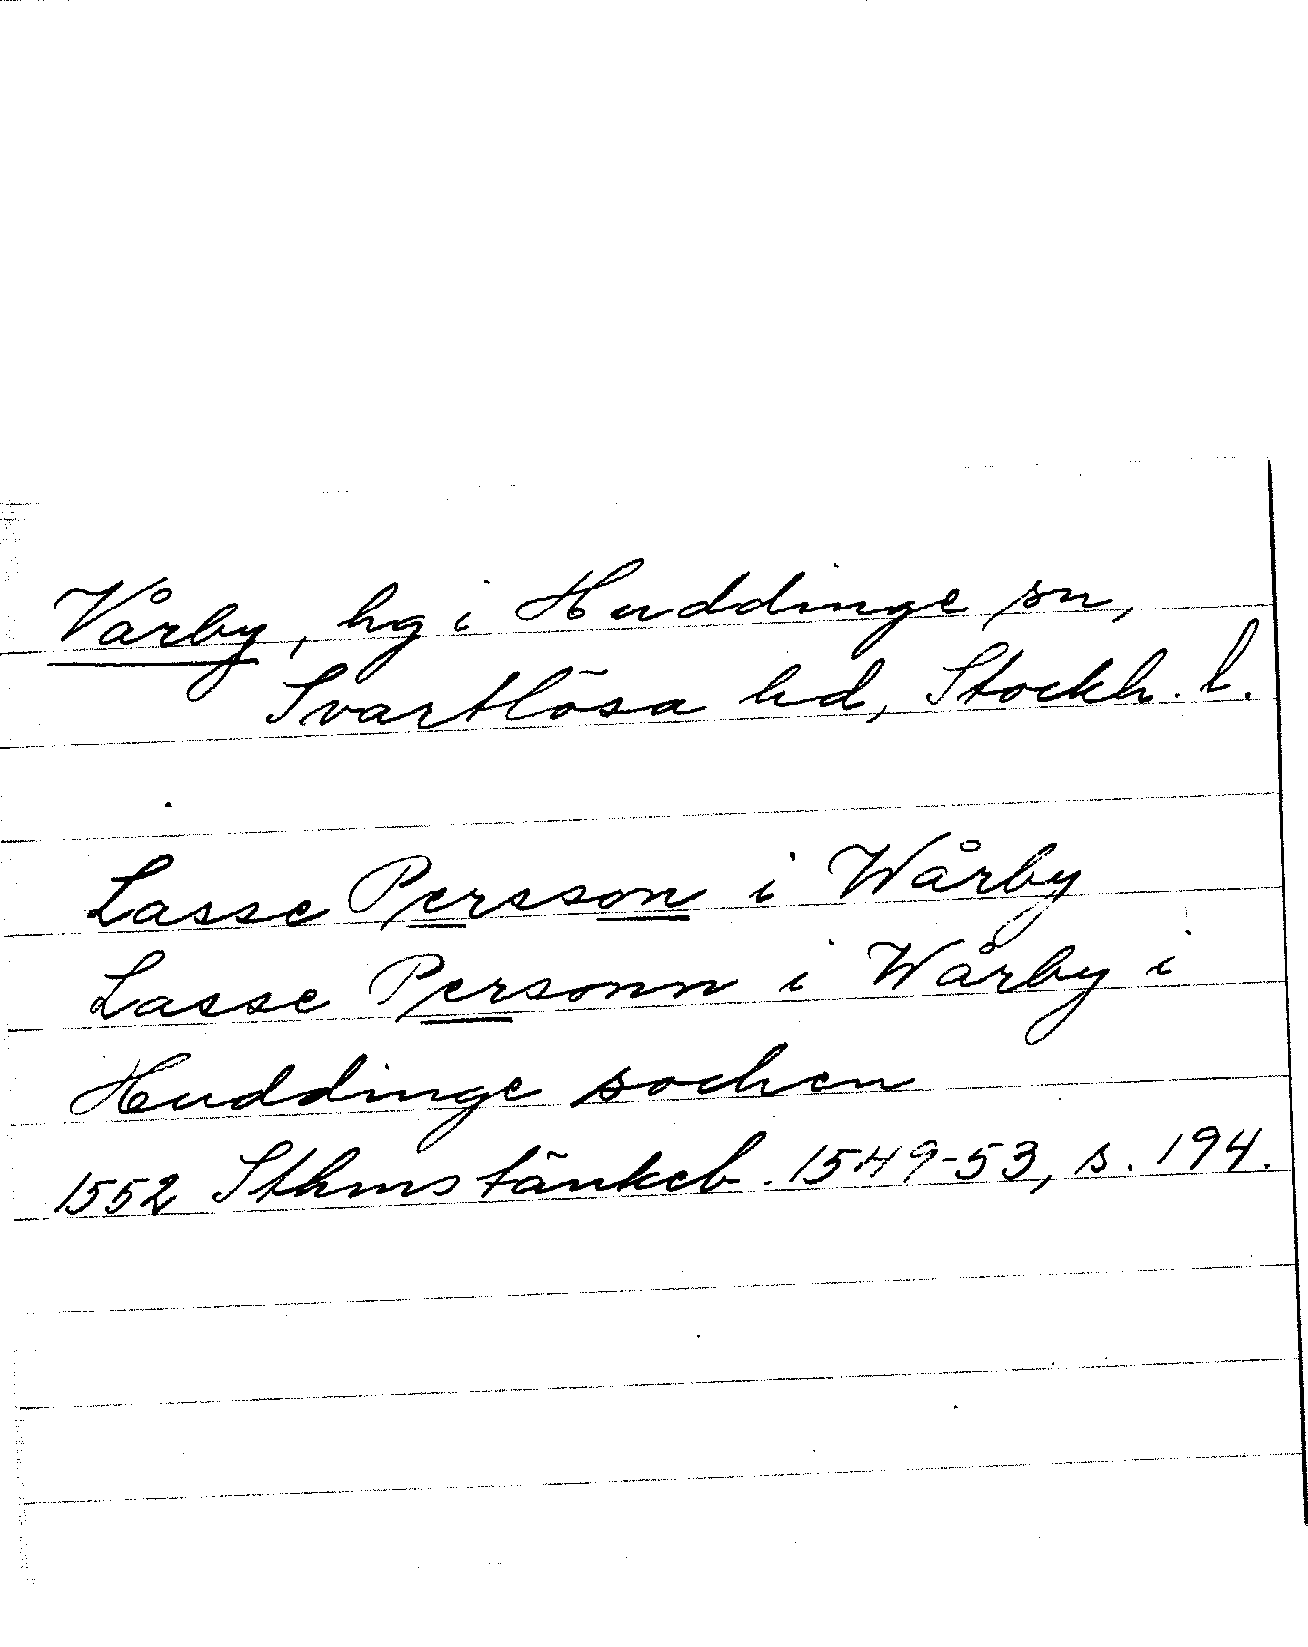 Vårby, hg i Huddinge sn,
Svartlösa hd, Stockh. l.
Lasse Persson i Wårby
Lasse Personn i Wårby i
Huddinge sochen
1552 Sthms tänkeb. 1549-53, s. 194.